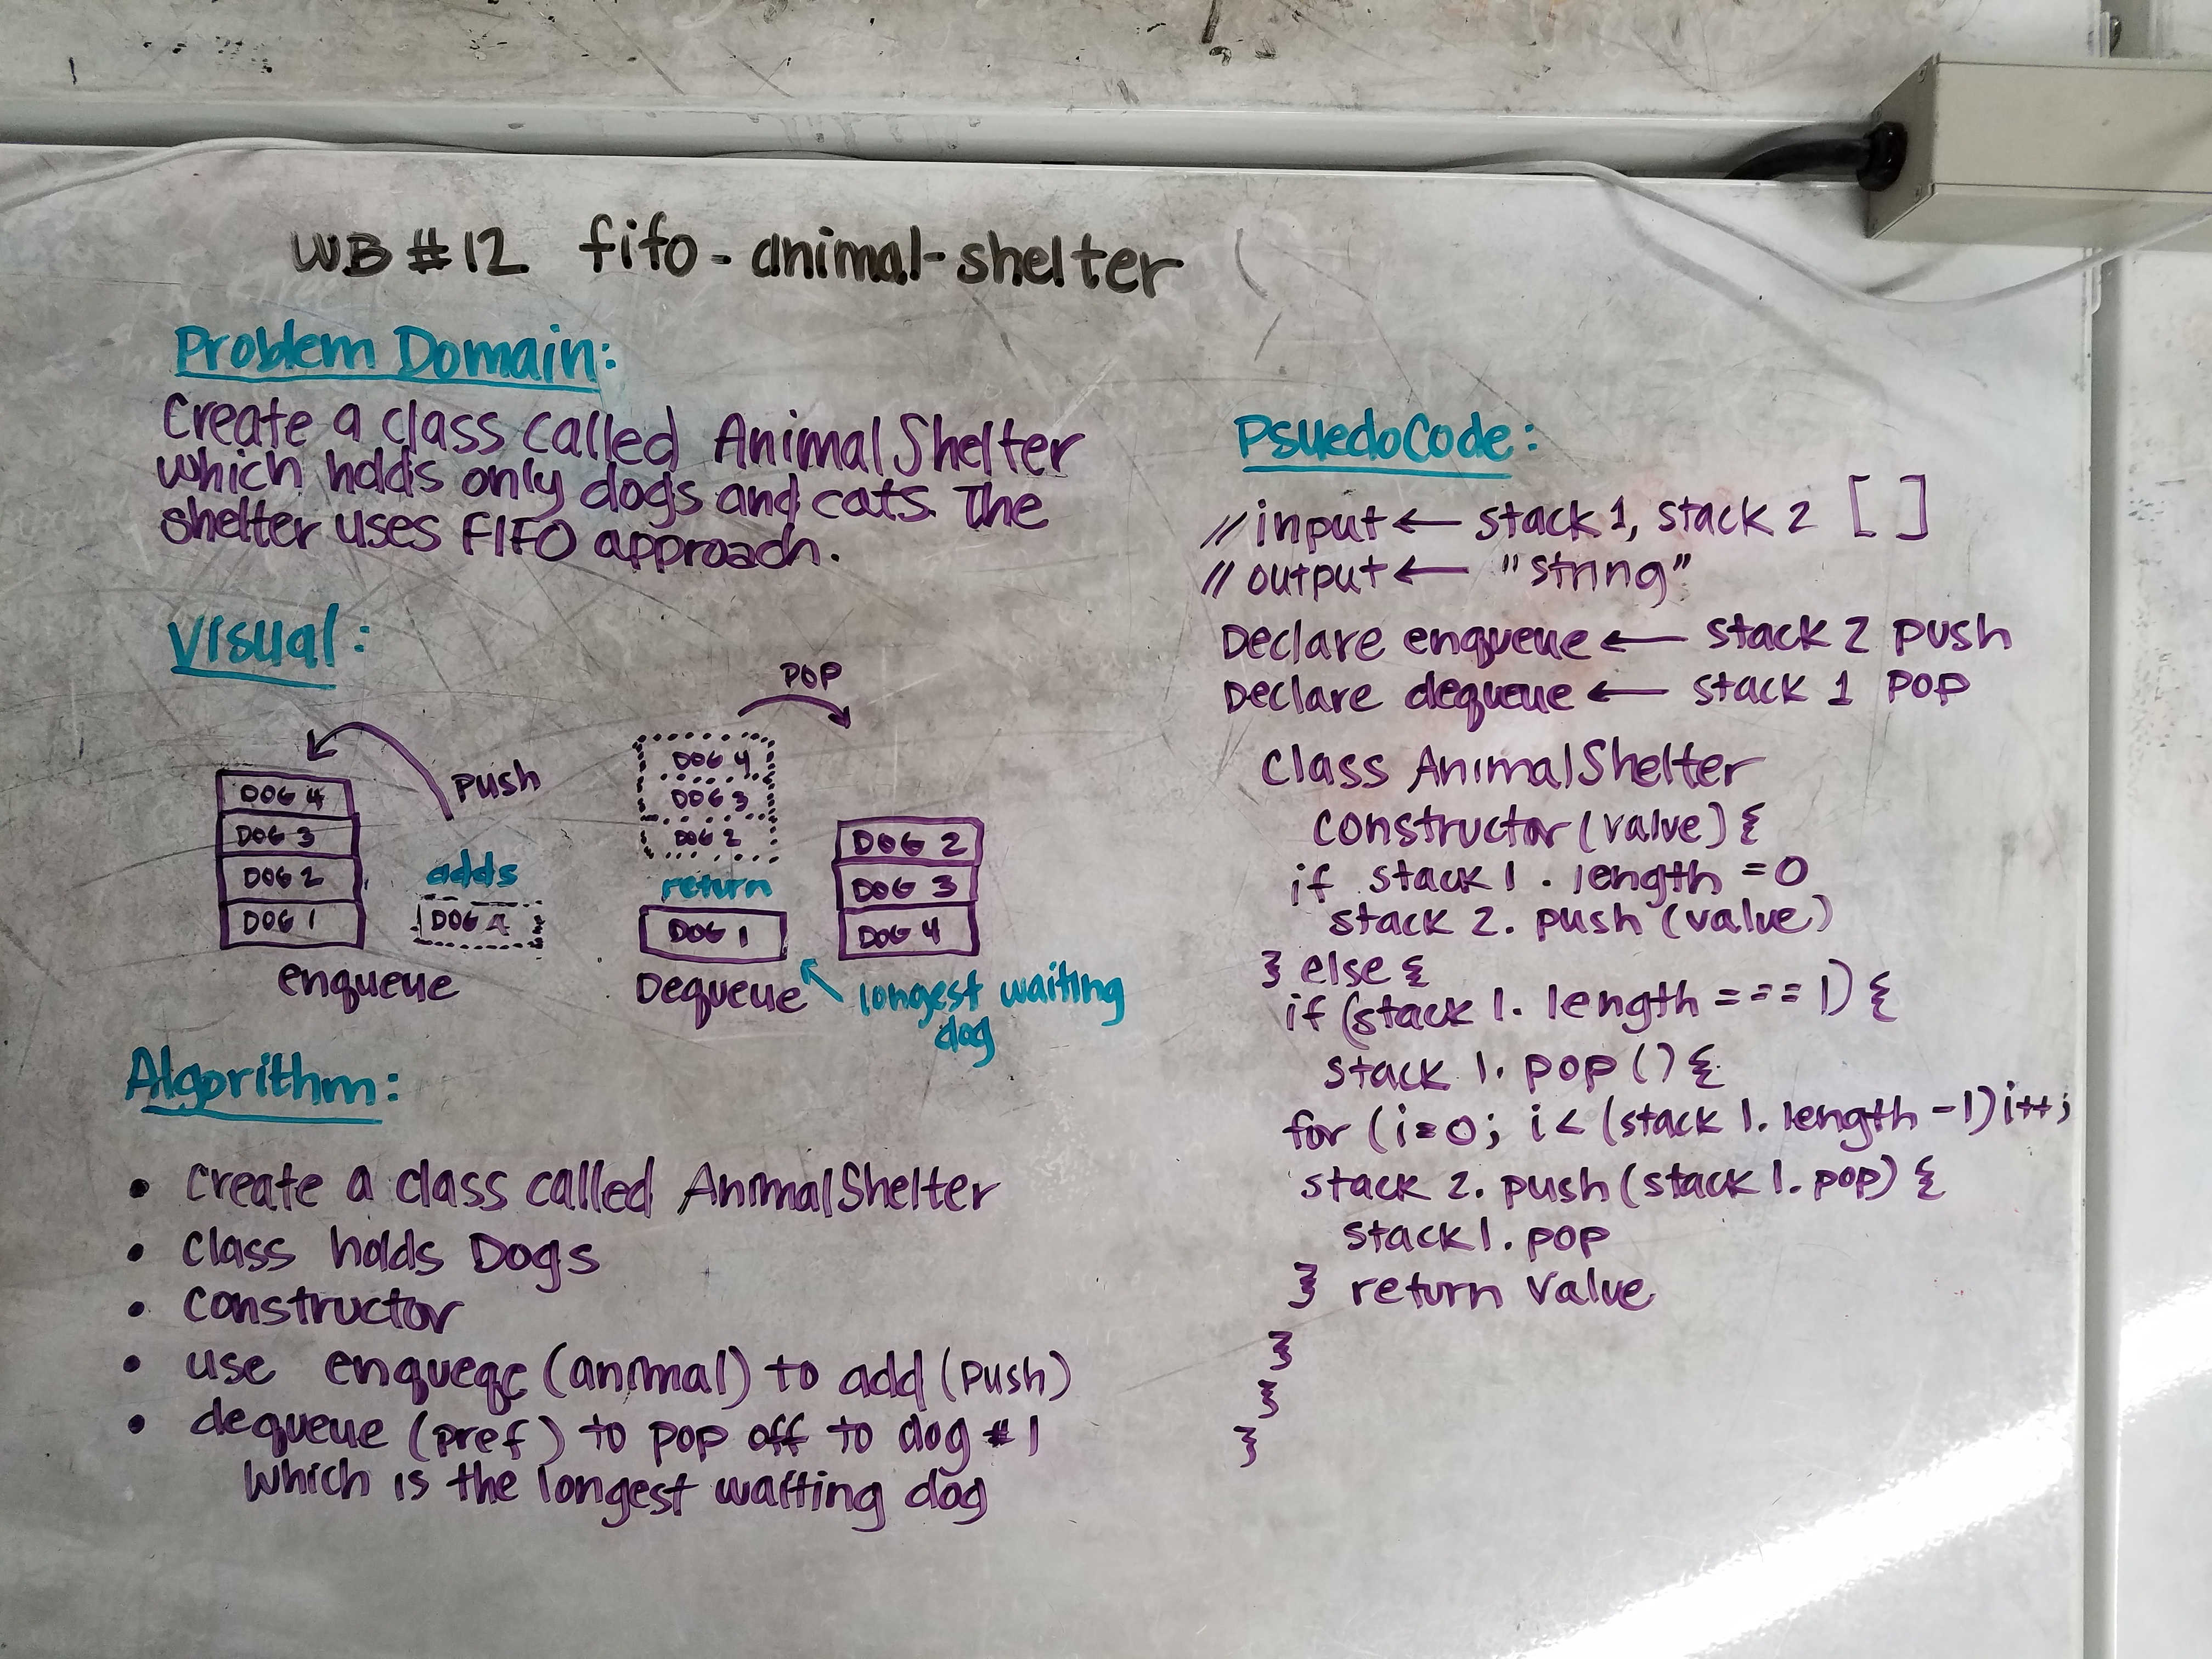 WB #12 fifo-animal-shelter
Problem Domain:
Create a class called AnimalShelter
which holds only dogs and cats. The
shelter uses FIFO approach.
Visual:
push
DOG 4
DOG 3
DOG 2
DOG 1
adds
DOG 4
enqueue
POP
DOG 4
DOG 3
DOG 2
return
DOG 1
Dequeue
DOG 2
DOG 3
DOG 4
longest waiting
dog
Algorithm:
• Create a class called AnimalShelter
• Class holds Dogs
• Constructor
• use enqueqe (animal) to add (push)
• dequeue (pref) to pop off to dog #1
which is the longest waiting dog
PsuedoCode:
// input ← stack 1, stack 2 [ ]
// output ← "string"
Declare enqueue ← stack 2 push
Declare dequeue ← stack 1 pop
Class AnimalShelter
Constructor (value) {
if stack 1 . length = 0
stack 2. push (value)
} else {
if (stack 1. length === 1) {
stack 1. pop () {
for (i=0; i < (stack 1. length -1) i++;
stack 2. push (stack 1. pop) {
stack 1. pop
} return value
}
}
}